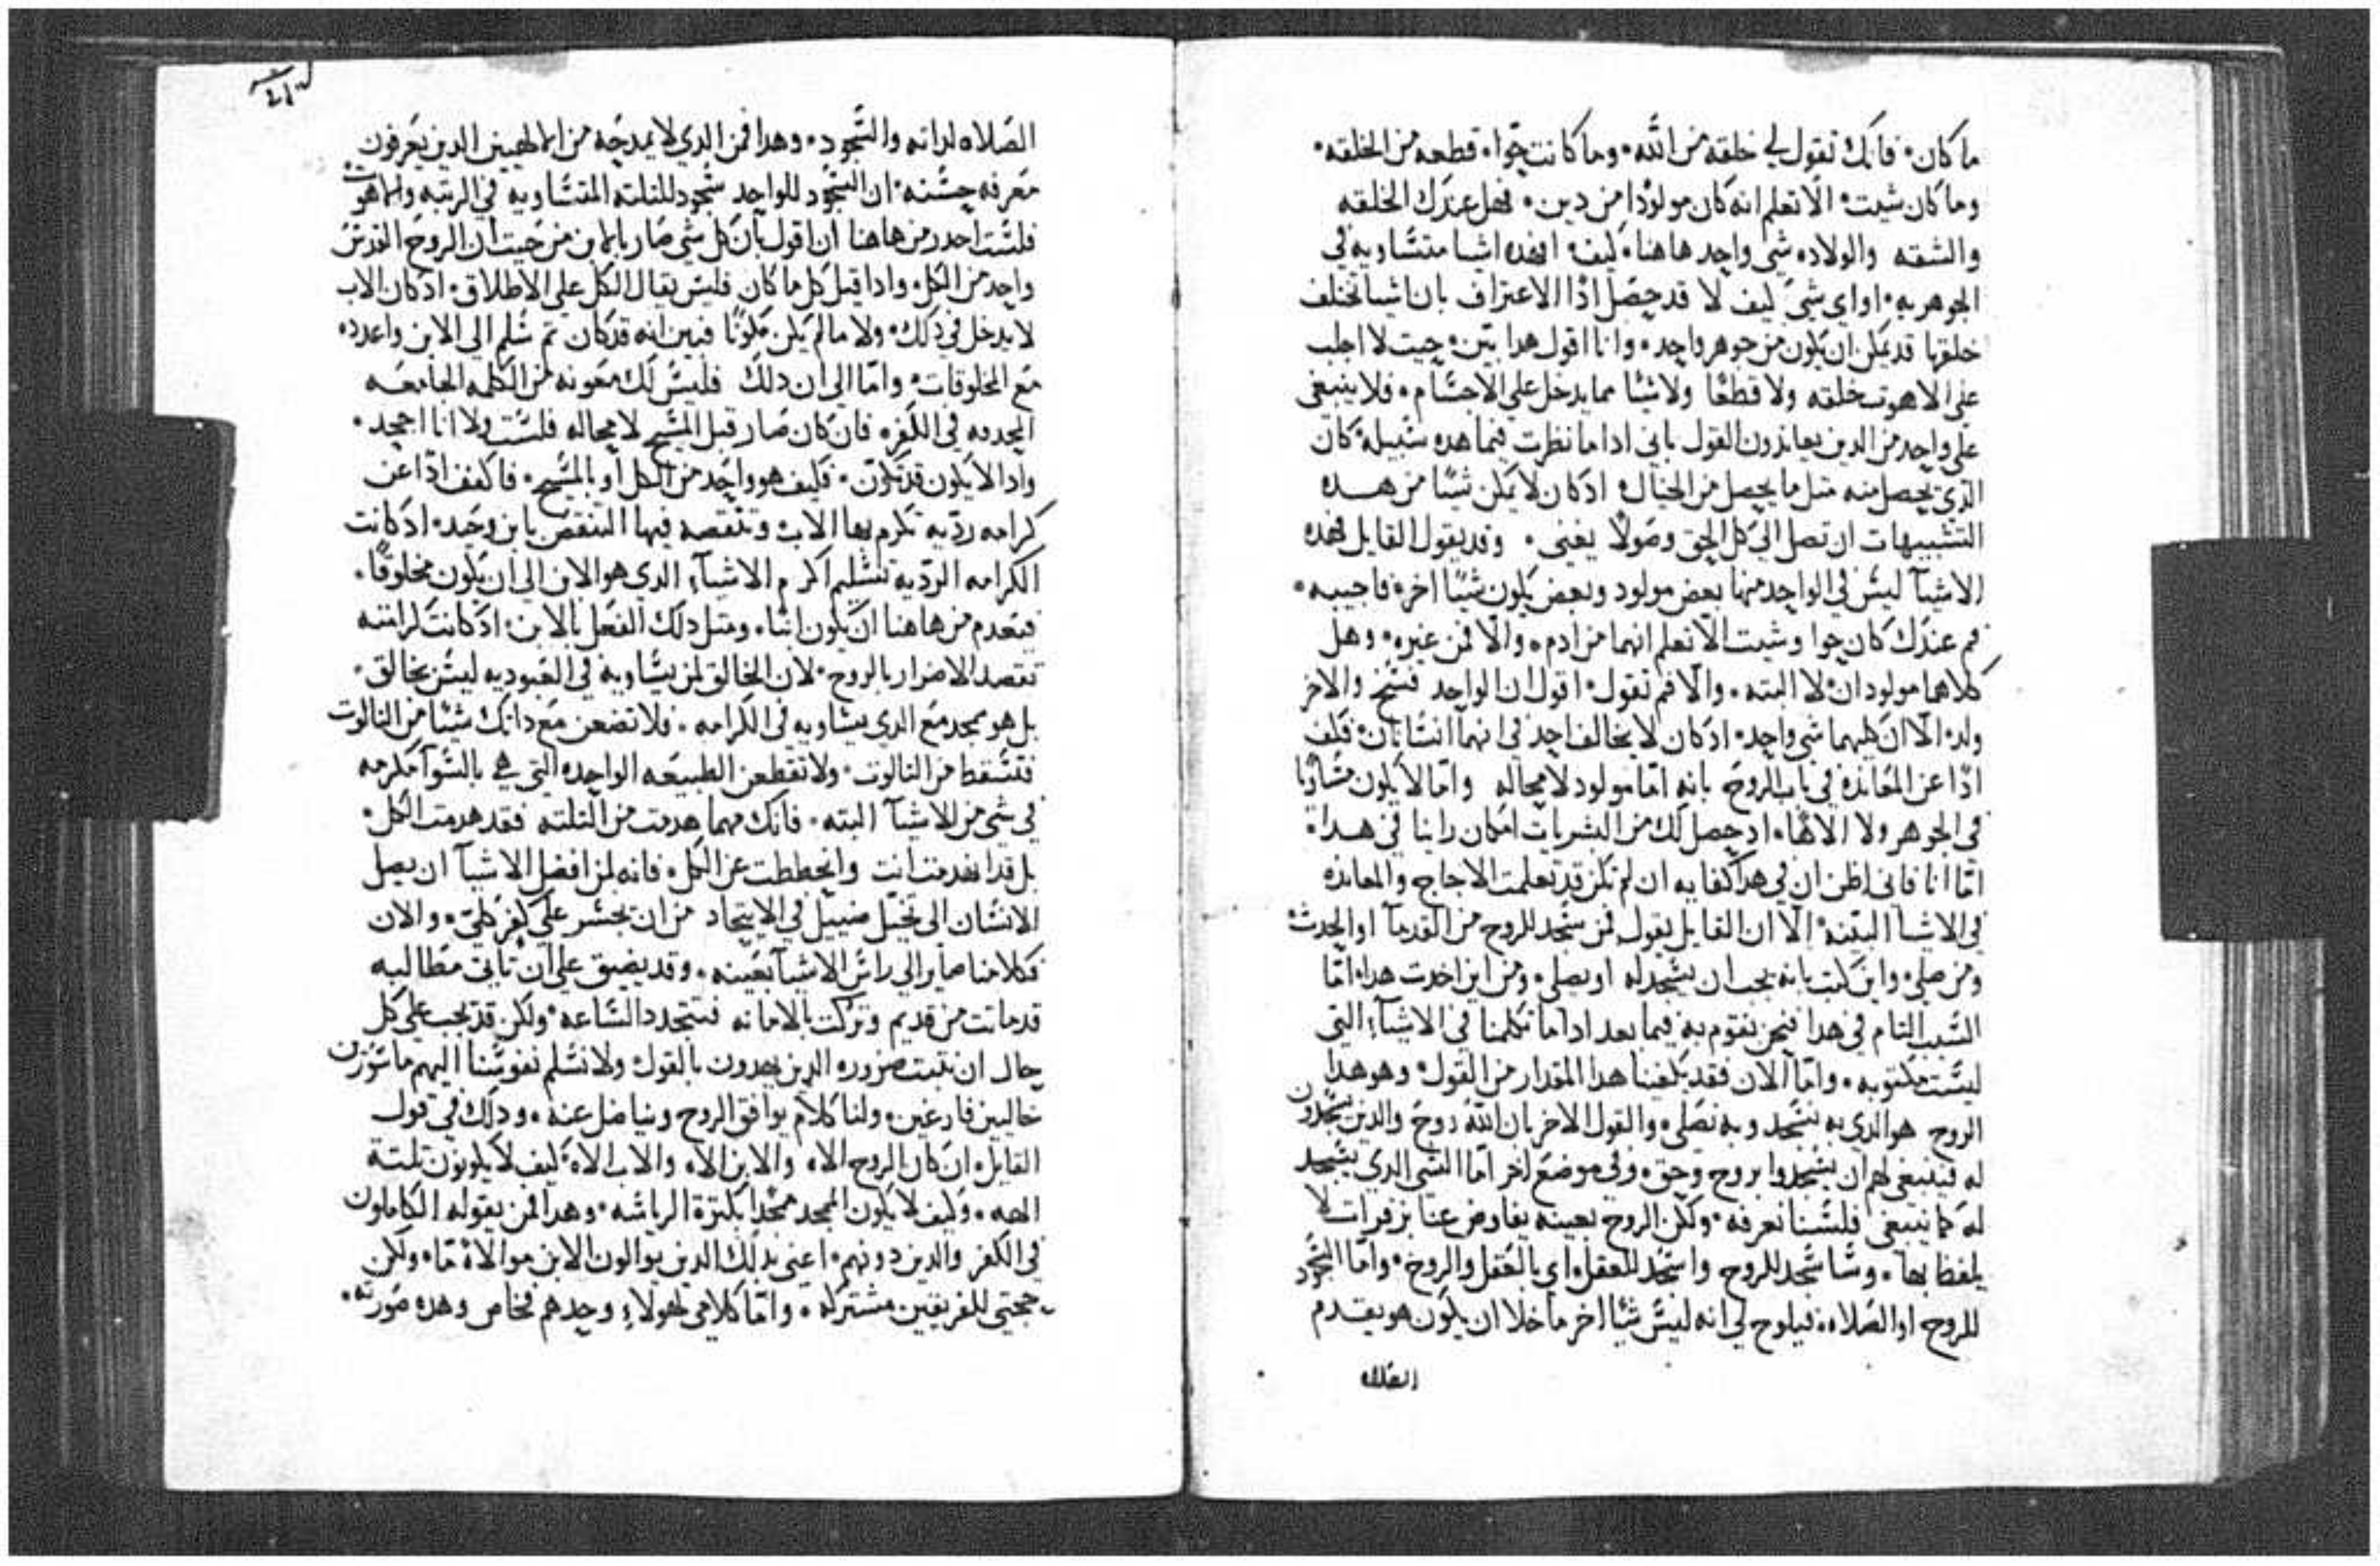 ما كان٠ فانك تقول لي خلقه من الله٠ وما كانت حوا٠ قطعه من الخلقه٠
وما كان شيت٠ الا تعلم انه كان مولودا من دين٠ فهل عندك الخلقه
والشقه والولاده شي واحد هاهنا٠ كيف٠ افهده اشيا متساويه في
الجوهريه٠ او اي شي كيف لا قد حصل ادا الاعتراف بان اشيا تختلف
خلقتها قد يمكن ان يكون من جوهر واحد٠ وانا اقول هدا بين٠ حيت لا اجلب
على الاهوت خلقه ولا قطعا ولا شيا مما يدخل على الاجسام٠ فلا ينبغي
على واحد من الدين يعاندون القول باني ادا ما نظرت فيما هده سبيله كان
الدي يحصل منه متل ما يحصل من الخيال٠ اد كان لا يمكن شيا من هده
التشبيهات ان تصل الي كل الحق وصولا يغني٠ وقد يقول القايل فهده
الاشيآ ليس في الواحد منها بعض مولود وبعض يكون شيا اخر٠ فاجيبه٠
فم عندك كان حوا وشيت الا تعلم انهما من ادم٠ والا فمن غيره٠ وهل
كلاهما مولودان٠ لا البته٠ والا فم تقول٠ اقول ان الواحد فسخ والاخر
ولد٠ الا ان كليهما شي واحد٠ اد كان لا يخالف احد في انهما انسانان٠ فكف
ادا عن المعانده في باب الروح بانه اما مولود لا محاله واما لا يكون مساويا
في الجوهر ولا الاها٠ اد حصل لك من البشريات امكان راينا في هدا٠
اما انا فاني اظن ان في هدا كفايه ان لم تكن قد تعلمت الاجاج والمعانده
في الاشيا البينه٠ الا ان القايل يقول فمن سجد للروح من القدمآ او الحدث
ومن صلى٠ واين كتب بانه يجب ان يسجد له او يصلى٠ ومن اين اخدت هدا٠ اما
السبب التام في هدا فنحن نقوم به فيما بعد ادا ما تكلمنا في الاشيآء التي
ليست مكتوبه٠ واما الان فقد يكفينا هدا المقدار من القول٠ وهو هدا
الروح هو الدي به نسجد وبه نصلي٠ والقول الاخر بان الله روح والدين يسجدون
له فينبغي لهم ان يسجدوا بروح وحق٠ وفي موضع اخر اما الشي الدي يسجد
له كما ينبغي فلسنا نعرفه٠ ولكن الروح بعينه يفاوض عنا بزفرات لا
يلفظ بها٠ وساسجد للروح واسجد للعقل٠ اي بالعقل والروح٠ واما السجود
للروح او الصلاه٠ فيلوح لي انه ليس شيا اخر ما خلا ان يكون هو يقدم
الصلاه
الصلاه لداته والسجود٠ وهدا فمن الدي لا يمدحه من الالهيين الدين يعرفون
معرفه حسنه٠ ان السجود للواحد سجود للتلته المتساويه في الرتبه والاهوت
فلست احدر من هاهنا ان اقول بان كل شي صار بالابن من حيت ان الروح القدس
واحد من الكل٠ وادا قيل كل ما كان فليس يقال الكل على الاطلاق٠ اد كان الاب
لا يدخل في دلك٠ ولا ما لم يكن مكونا فبين انه قد كان تم سلم الى الابن واعدده
مع المخلوقات٠ واما الى ان دلك فليس لك معونه من الكلمه الجامعه
المجدفه في الكفر٠ فان كان صار قبل المسيح لا محاله فلست ولا انا اجحد٠
وادا لا يكون قد تكون٠ فكيف هو واحد من الكل او بالمسيح٠ فاكفف ادا عن
كرامه رديه تكرم بها الاب وتقصد فيها التنقص بابن وحيد٠ اد كانت
الكرامه الرديه تسلم اكرم الاشيآء الدي هو الابن الى ان يكون مخلوقا٠
فيعدم من هاهنا ان يكون ابنا٠ ومتل دلك الفعل بالابن٠ اد كانت كرامته
تقصد الاضرار بالروح٠ لان الخالق لمن يساويه في العبوديه ليس بخالق٠
بل هو ممجد مع الدي يساويه في الكرامه٠ فلا تضعن مع داتك شيا من التالوت
فتسقط من التالوت٠ ولا تقطعن الطبيعه الواحده التي هي بالسوآ مكرمه
في شي من الاشيآ البته٠ فانك مهما هدمت من التلته فقد هدمت الكل٠
بل قد انهدمت انت وانحططت عن الكل٠ فانه لمن افضل الاشيآ ان يصل
الانسان الى تخيل ضييل في الايتحاد من ان يجسر على كفر كلي٠ والان
فكلامنا صاير الي راس الاشيآ بعينه٠ وقد يضيق علي ان تاتي مطالبه
قد ماتت من قديم وتركت بالامانه فتتجدد الساعه٠ ولكن قد يجب على كل
حال ان نتبت ضروره الدين يهدون بالقول ولا نسلم نفوسنا اليهم ماسورين
خاليين فارغين٠ ولنا كلام يوافق الروح ويناضل عنه٠ ودلك في قول
القايل٠ ان كان الروح الاه والابن الاه والاب الاه٠ كيف لا يكونون تلتة
الهه٠ وكيف لا يكون الممجد ممجدا بكترة الرياسه٠ وهدا فمن يقوله الكاملون
في الكفر والدين دونهم٠ اعني بدلك الدين يوالون الابن موالاة ما٠ ولكن
حجتي للفريقين مشتركه٠ واما كلامي لهولاء وحدهم فخاص وهده صورته٠